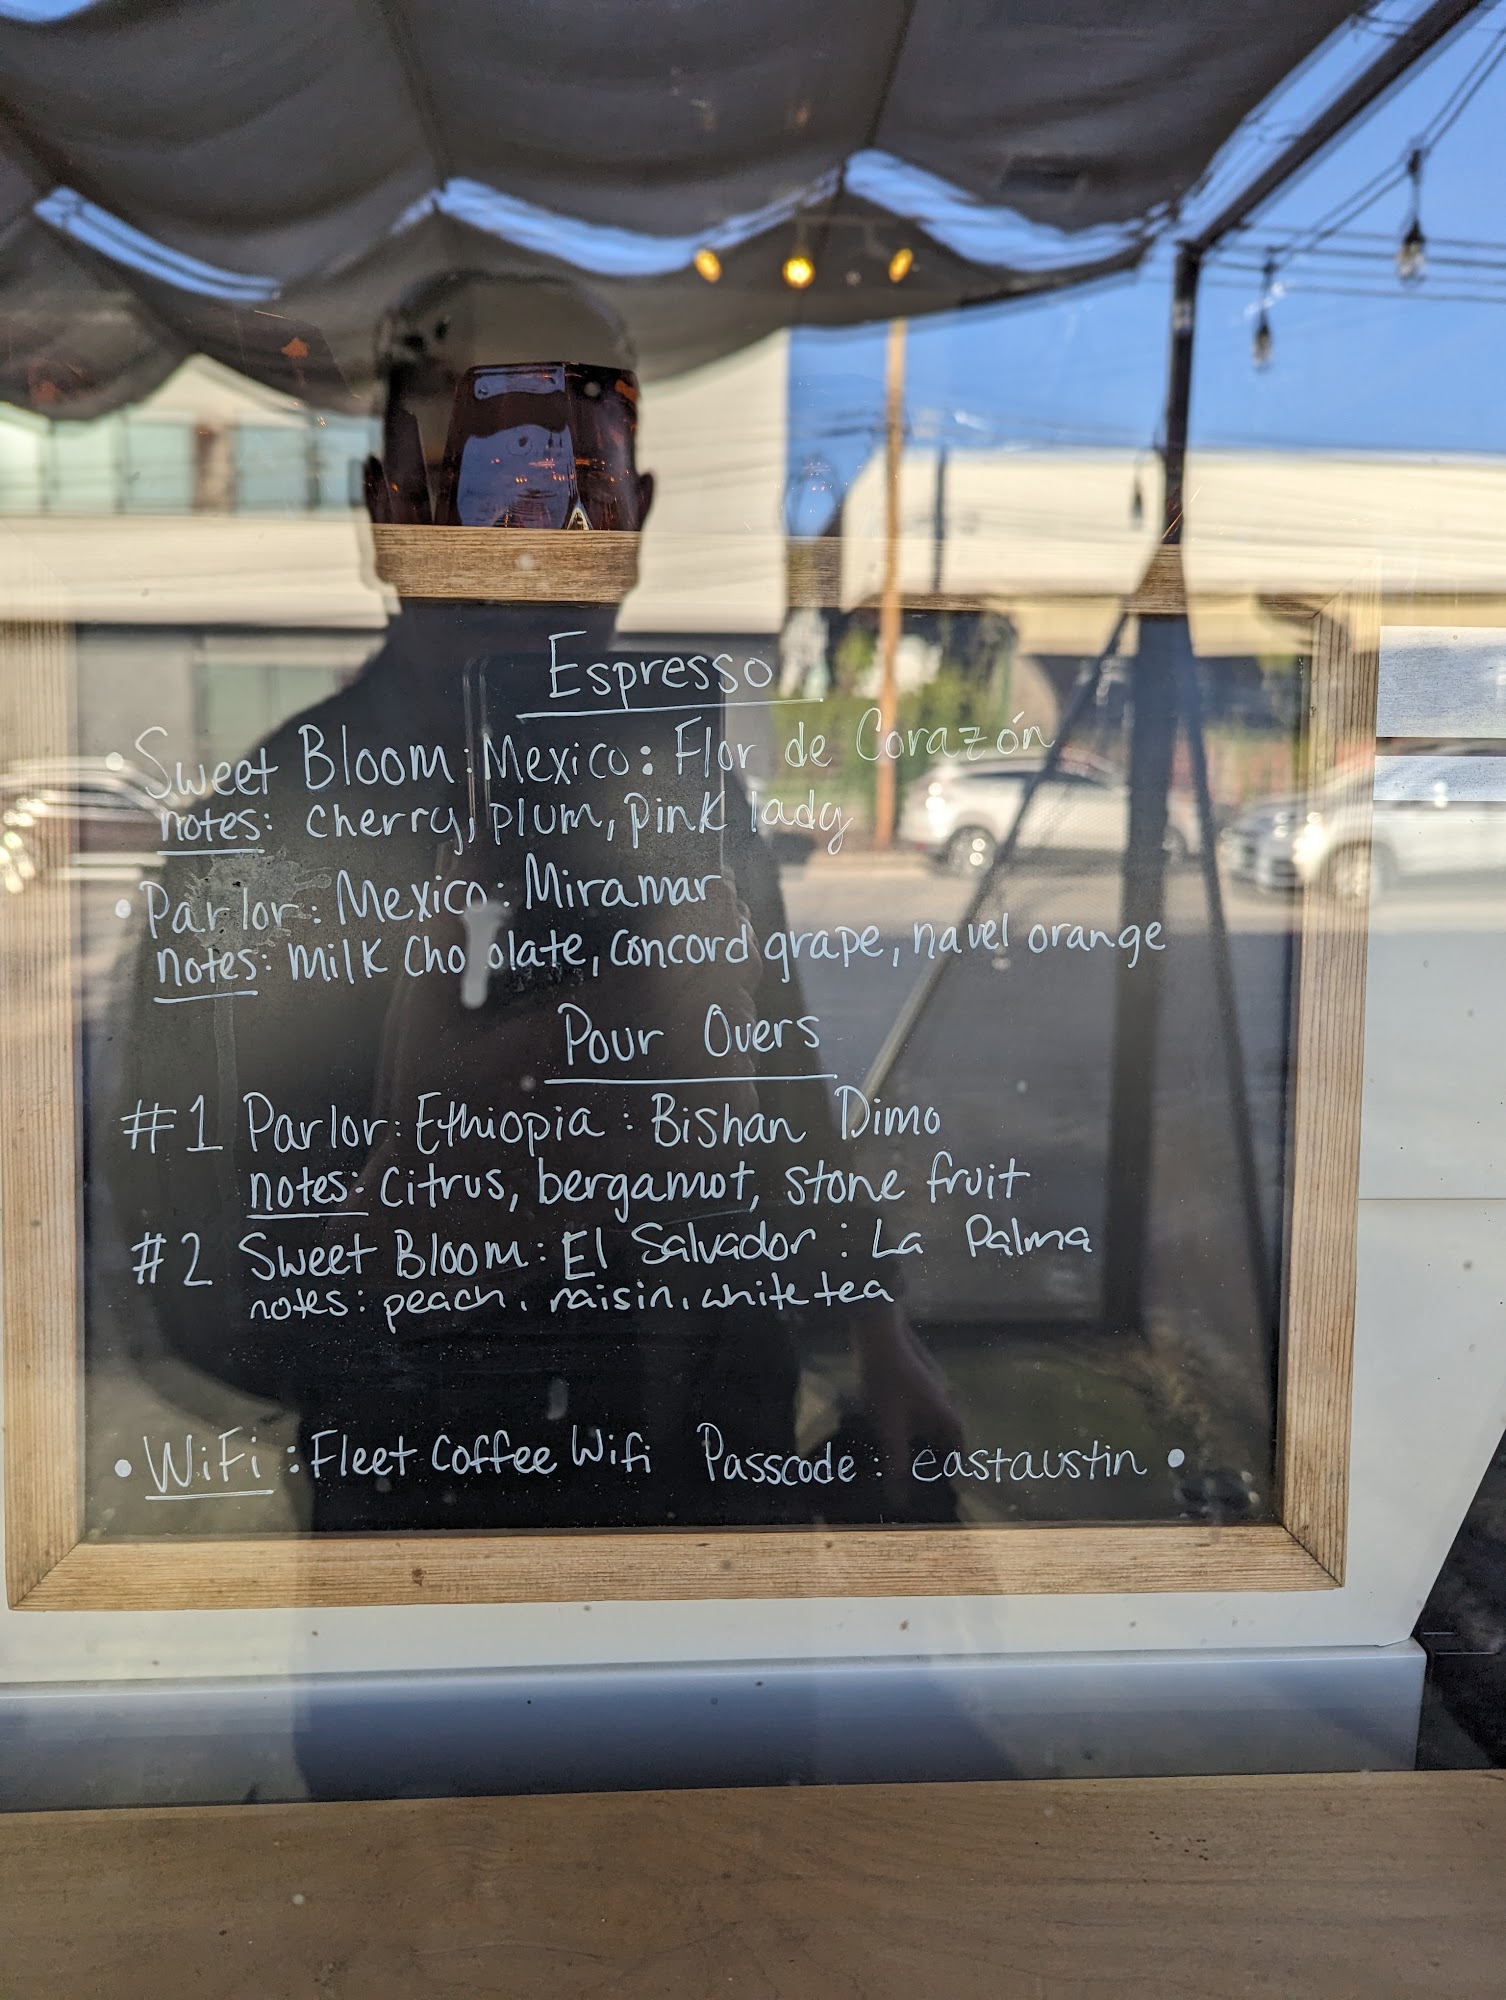 Espresso
• Sweet Bloom: Mexico: Flor de Corazón
notes: cherry, plum, pink lady
• Parlor: Mexico: Miramar
notes: milk chocolate, concord grape, navel orange
Pour Overs
#1 Parlor: Ethiopia: Bishan Dimo
notes: citrus, bergamot, stone fruit
#2 Sweet Bloom: El Salvador: La Palma
notes: peach, raisin, white tea
• WiFi: Fleet Coffee Wifi Passcode: eastaustin •